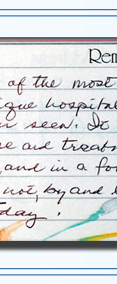 Rem
of the most
que hospital
seen. It
aid treatm
and in a fo
not, by and l
day.